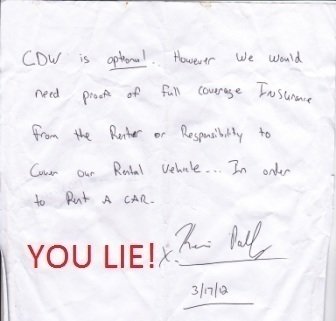 CDW is optional. However We Would
need proof of full coverage Insurance
From the Renter or Responsibility to
Cover our Rental Vehicle... In order
to Rent A CAR.
YOU LIE! x.
3/17/12